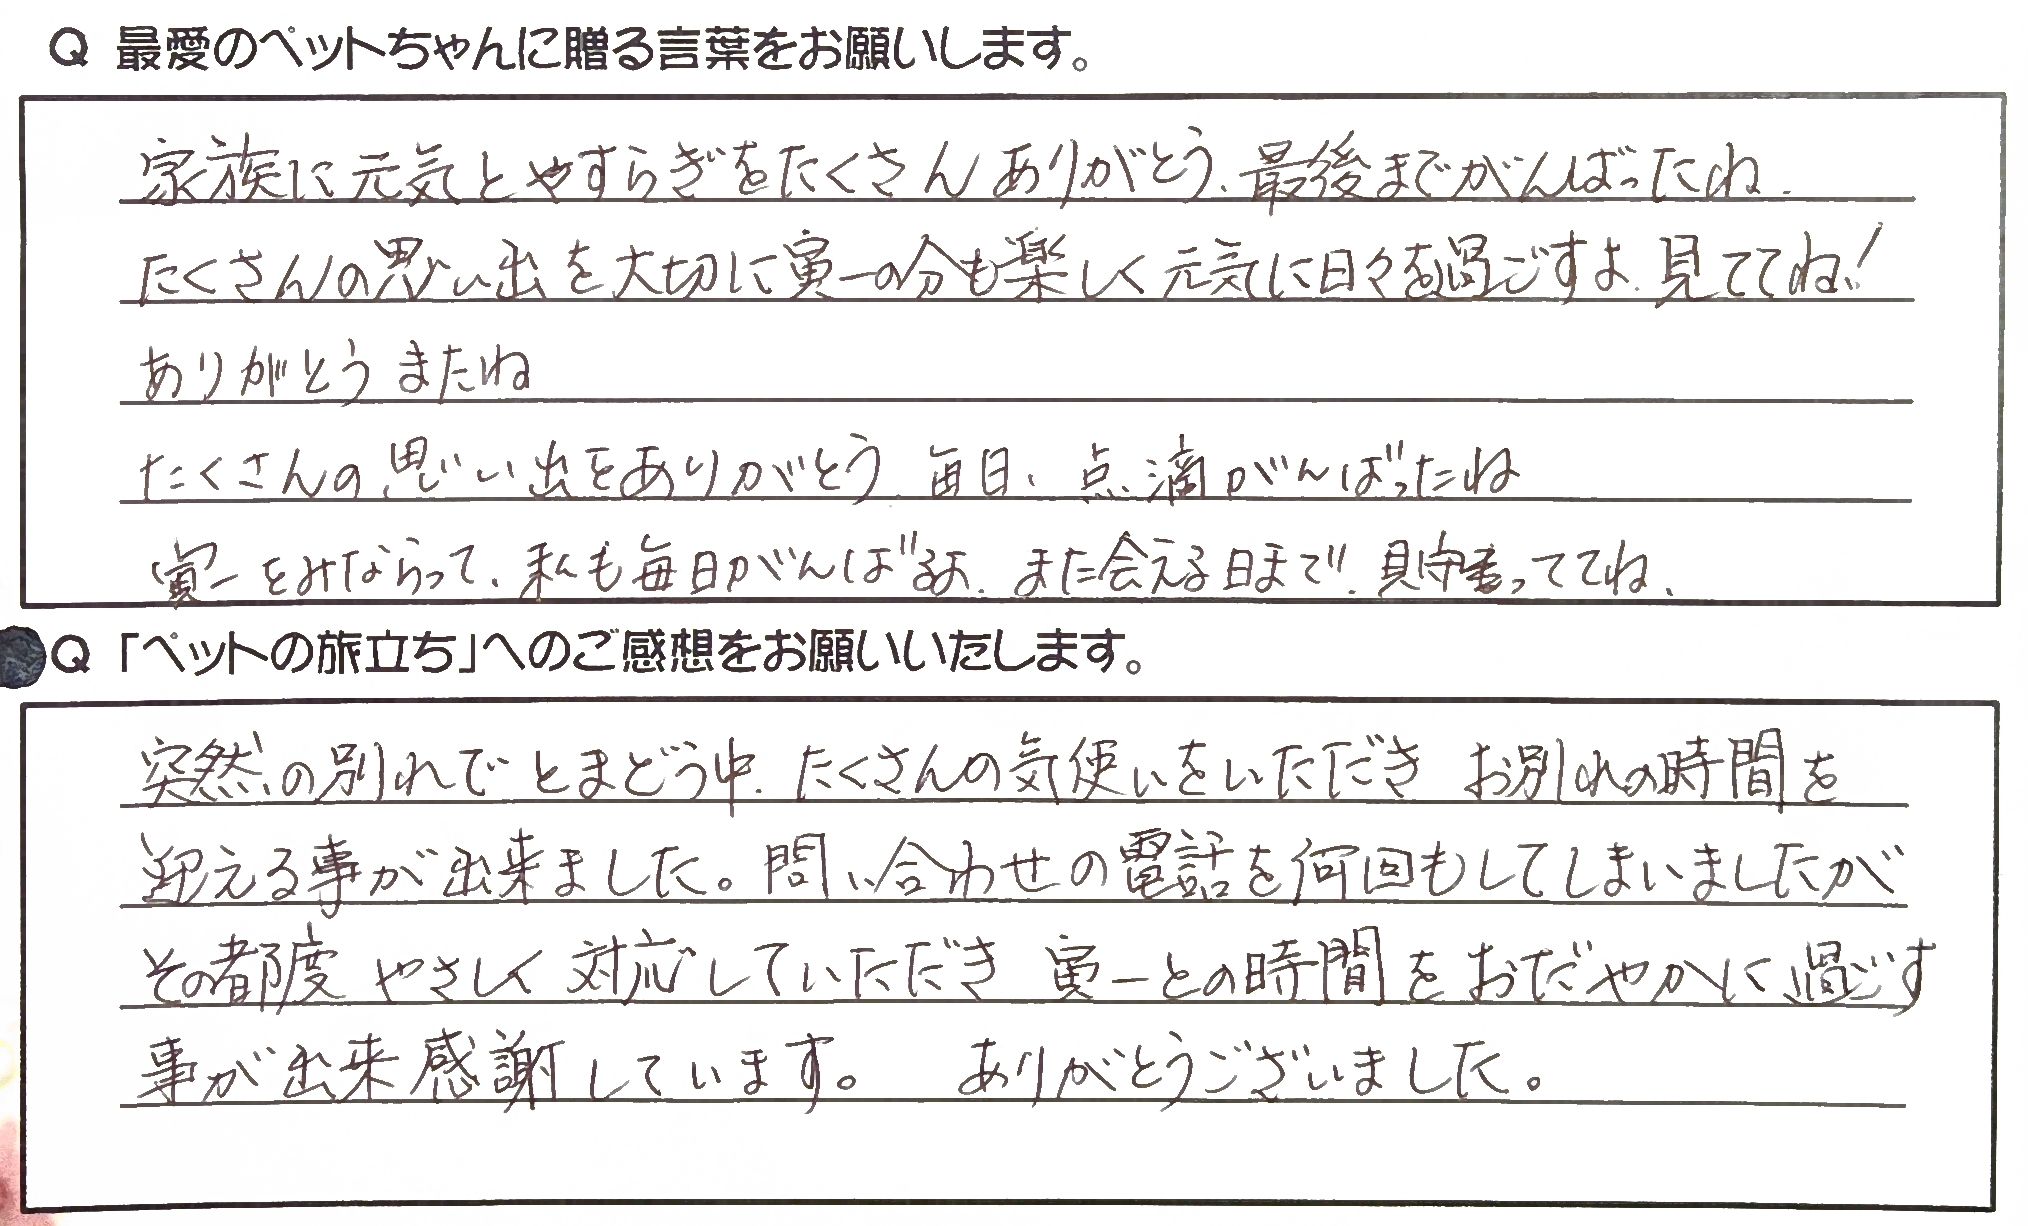 Q 最愛のペットちゃんに贈る言葉をお願いします。
家族に元気とやすらぎをたくさんありがとう、最後までがんばったね、
たくさんの思い出を大切に寅一の分も楽しく元気に日々を過ごすよ、見ててね!
ありがとう またね
たくさんの思い出をありがとう、毎日、点滴がんばったね
寅一をみならって、私も毎日がんばるよ、また会える日まで、見守っててね、
Q 「ペットの旅立ち」へのご感想をお願いいたします。
突然の別れで とまどう中、たくさんの気使いをいただき お別れの時間を
迎える事が出来ました。問い合わせの電話を何回もしてしまいましたが
その都度 やさしく 対応していただき 寅一との時間を おだやかに過ごす
事が出来感謝しています。 ありがとうございました。